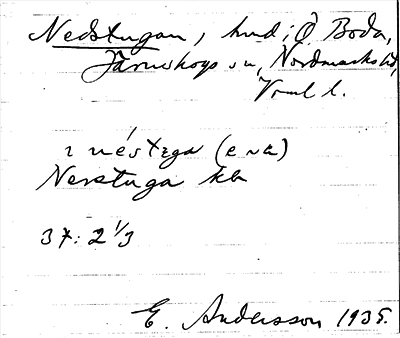 Nedstugan, hmd i Ö Boda,
Järnskogs sn, Nordmarks hd,
Vrml l.
ı néstʒga (e ~ a)
Nerstuga kb
37: 2 1/3
E. Andersson 1935.